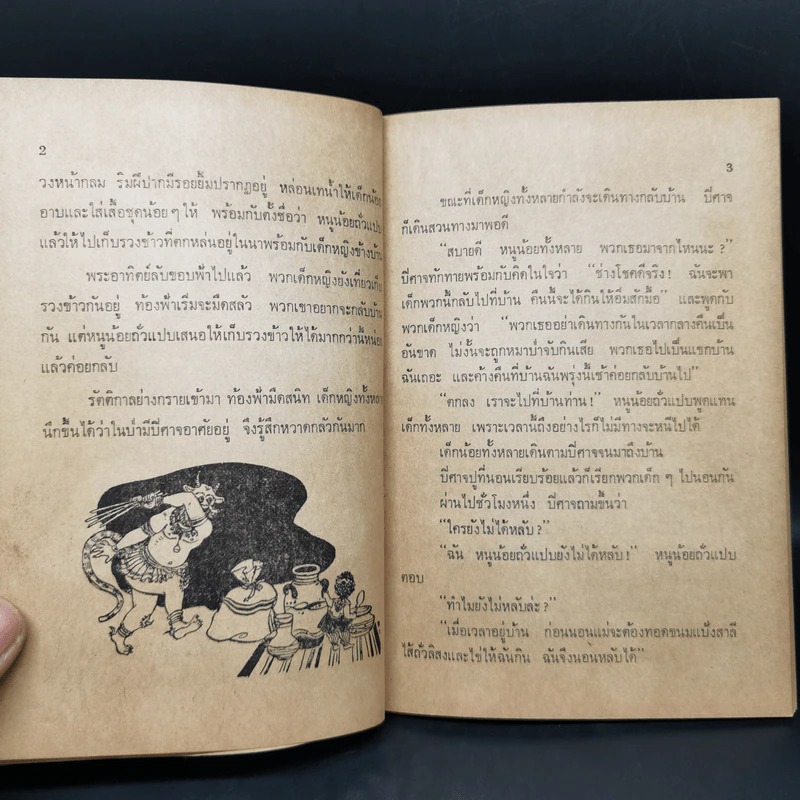 2
วงหน้ากลม ริมฝีปากมีรอยยิ้มปรากฏอยู่ หล่อนเทน้ำให้เด็กน้อย
อาบและใส่เสื้อชุดน้อยๆ ให้ พร้อมกับตั้งชื่อว่า หนูน้อยถั่วแปบ
แล้วให้ไปเก็บรวงข้าวที่ตกหล่นอยู่ในนาพร้อมกับเด็กหญิงข้างบ้าน
พระอาทิตย์ลับขอบฟ้าไปแล้ว พวกเด็กหญิงยังเที่ยวเก็บ
รวงข้าวกันอยู่ ท้องฟ้าเริ่มจะมืดสลัว พวกเขาอยากจะกลับบ้าน
กัน แต่หนูน้อยถั่วแปบเสนอให้เก็บรวงข้าวให้ได้มากกว่านี้หน่อย
แล้วค่อยกลับ
รัตติกาลย่างกรายเข้ามา ท้องฟ้ามืดสนิท เด็กหญิงทั้งหลาย
นึกขึ้นได้ว่าในป่ามีปีศาจอาศัยอยู่ จึงรู้สึกหวาดกลัวกันมาก
3
ขณะที่เด็กหญิงทั้งหลายกำลังจะเดินทางกลับบ้าน ปีศาจ
ก็เดินสวนทางมาพอดี
“สบายดี หนูน้อยทั้งหลาย พวกเธอมาจากไหนนะ?”
ปีศาจทักทายพร้อมกับคิดในใจว่า “ช่างโชคดีจริง! ฉันจะพา
เด็กพวกนี้กลับไปที่บ้าน คืนนี้จะได้กินให้อิ่มสักมื้อ” และพูดกับ
พวกเด็กหญิงว่า “พวกเธออย่าเดินทางกันในเวลากลางคืนเป็น
อันขาด ไม่งั้นจะถูกหมาป่าจับกินเสีย พวกเธอไปเป็นแขกบ้าน
ฉันเถอะ และค้างคืนที่บ้านฉันพรุ่งนี้เช้าค่อยกลับบ้านไป”
“ตกลง เราจะไปที่บ้านท่าน!” หนูน้อยถั่วแปบพูดแทน
เด็กทั้งหลาย เพราะเวลานี้ถึงอย่างไรก็ไม่มีทางจะหนีไปได้
เด็กน้อยทั้งหลายเดินตามปีศาจจนมาถึงบ้าน
ปีศาจปูที่นอนเรียบร้อยแล้วก็เรียกพวกเด็ก ๆ ไปนอนกัน
ผ่านไปชั่วโมงหนึ่ง ปีศาจถามขึ้นว่า
“ใครยังไม่ได้หลับ?”
“ฉัน หนูน้อยถั่วแปบยังไม่ได้หลับ!” หนูน้อยถั่วแปบ
ตอบ
“ทำไมยังไม่หลับล่ะ?”
“เมื่อเวลาอยู่บ้าน ก่อนนอนแม่จะต้องทอดขนมแป้งสาลี
ไส้ถั่วลิสงและไข่ให้ฉันกิน ฉันจึงนอนหลับได้”